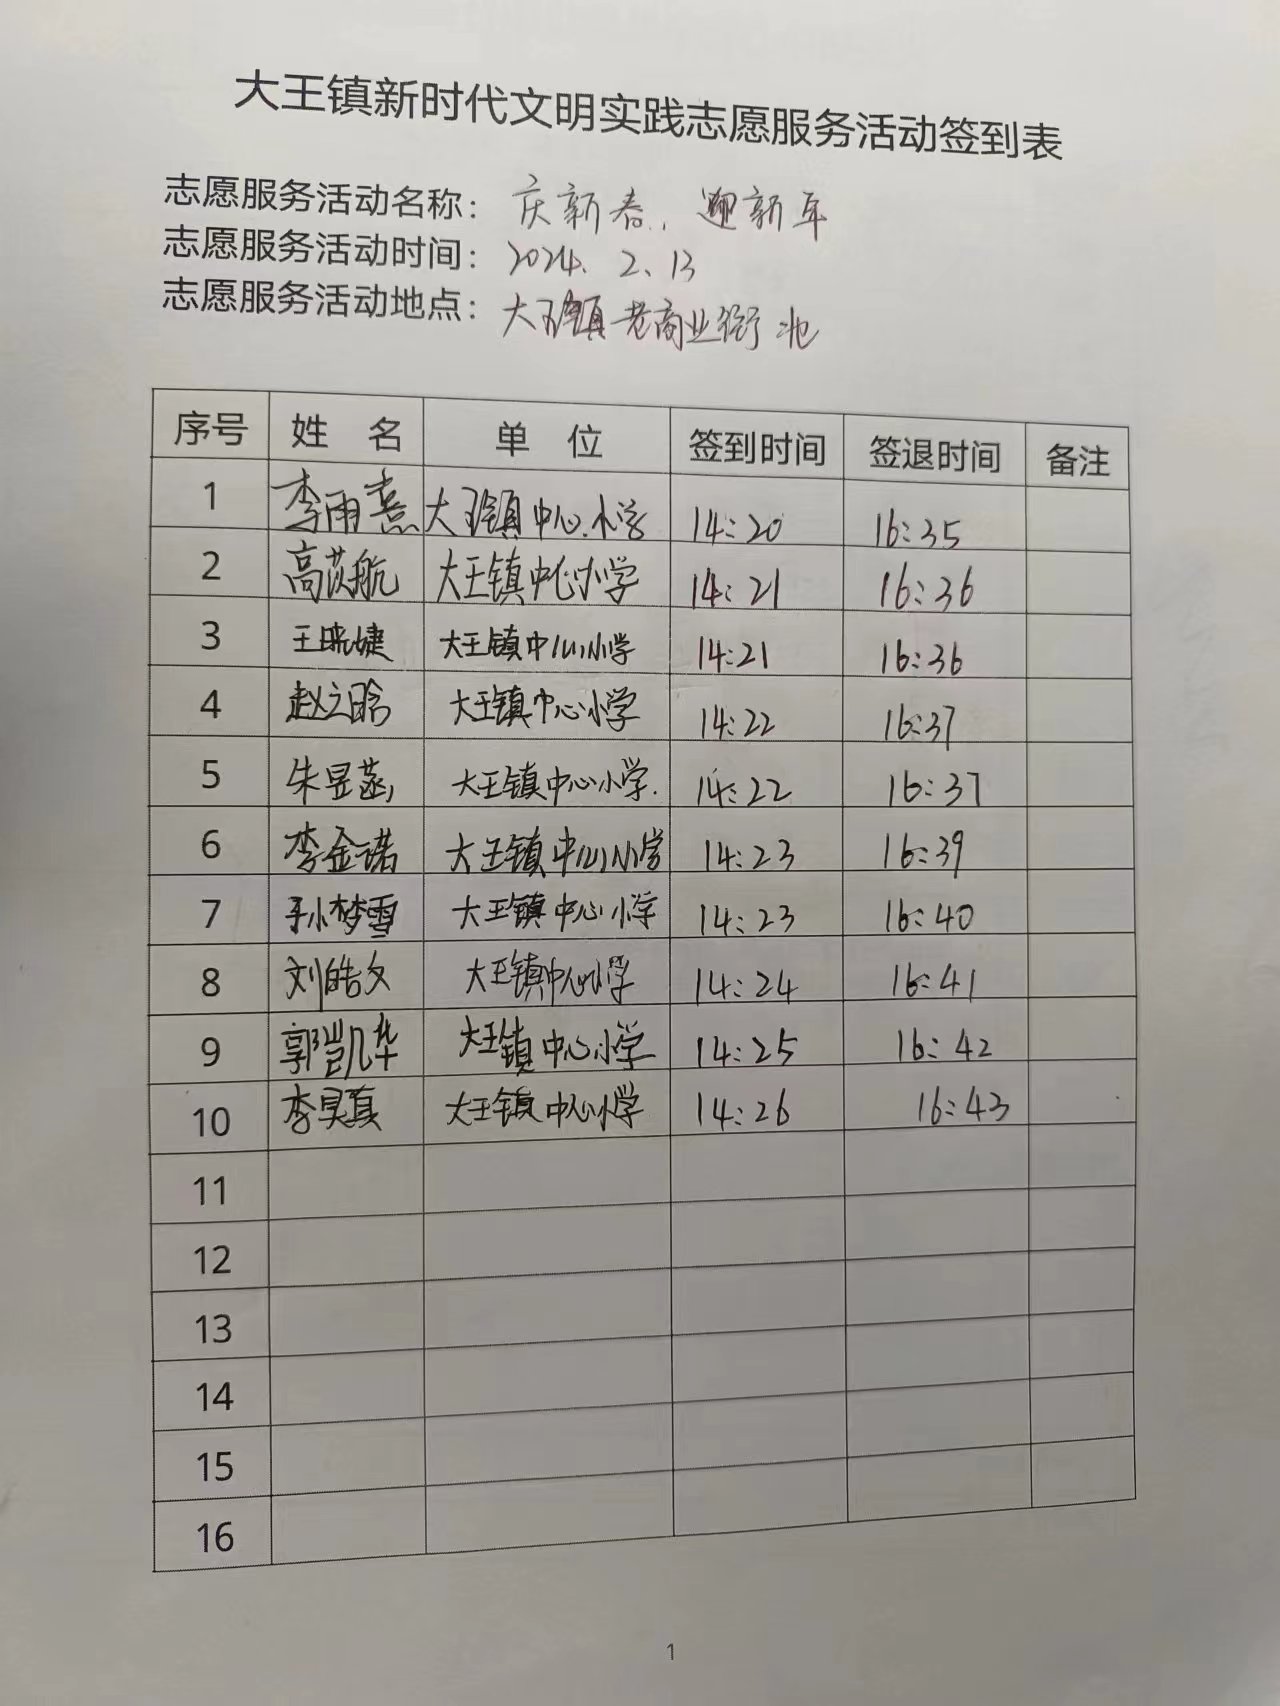 大王镇新时代文明实践志愿服务活动签到表
志愿服务活动名称: 庆新春, 迎新年
志愿服务活动时间: 2024. 2. 13
志愿服务活动地点: 大王镇老商业街北
序号 姓 名 单 位 签到时间 签退时间 备注
1 李雨熹 大王镇中心小学 14:20 16:35
2 高苡航 大王镇中心小学 14:21 16:36
3 王晓婕 大王镇中心小学 14:21 16:36
4 赵立晗 大王镇中心小学 14:22 16:37
5 朱昱菡 大王镇中心小学. 14:22 16:37
6 李金诺 大王镇中心小学 14:23 16:39
7 孙梦雪 大王镇中心小学 14:23 16:40
8 刘皓文 大王镇中心小学 14:24 16:41
9 郭凯华 大王镇中心小学 14:25 16:42
10 李昊真 大王镇中心小学 14:26 16:43
11
12
13
14
15
16
1